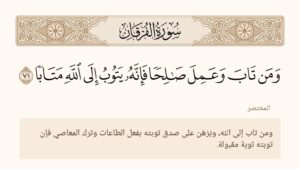 سُورَةُ الفُرْقَانِ
وَمَن تَابَ وَعَمِلَ صَٰلِحٗا فَإِنَّهُۥ يَتُوبُ إِلَى ٱللَّهِ مَتَابٗا ٧١
المختصر
ومن تاب إلى الله، وبرهن على صدق توبته بفعل الطاعات وترك المعاصي فإن
توبته توبة مقبولة.